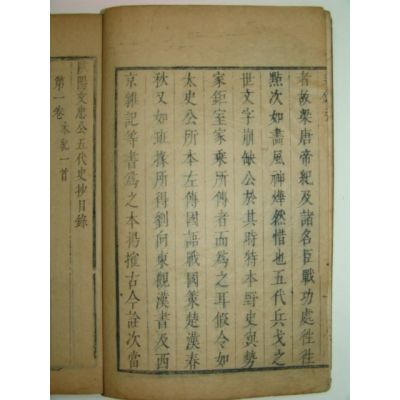 者故梁唐帝紀及諸名臣戰功處往往
點次如畫風神燁然惜也五代兵戈之
世文字崩缺公於其時特本野史與勢
家鉅室家乘所傳者而爲之耳假令如
太史公所本左傳國語戰國策楚漢春
秋又如班掾所得劉向東觀漢書及西
京雜記等書爲之本揚搉古今詮次當
陽文忠公五代史抄目錄
第一卷 本紀一首